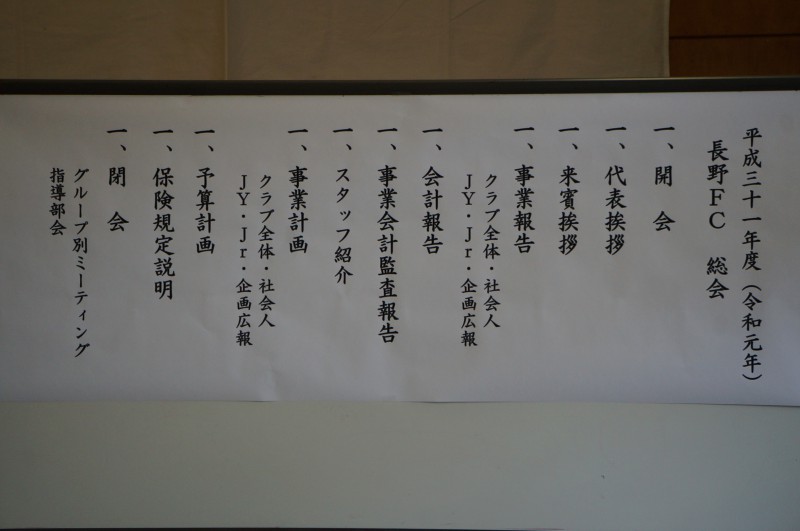 平成三十一年度（令和元年）
長野ＦＣ　総会
一、開　会
一、代表挨拶
一、来賓挨拶
一、事業報告
クラブ全体・社会人
ＪＹ・Ｊｒ・企画広報
一、会計報告
一、事業会計監査報告
一、スタッフ紹介
一、事業計画
クラブ全体・社会人
ＪＹ・Ｊｒ・企画広報
一、予算計画
一、保険規定説明
一、閉　会
グループ別ミーティング
指導部会